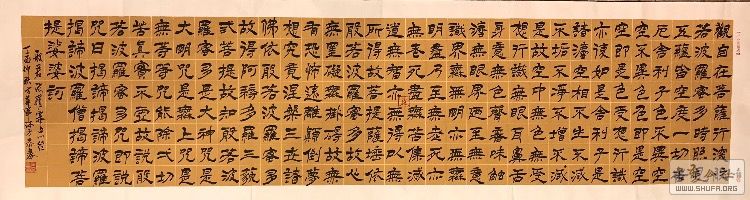 觀自在菩薩行深般
若波羅蜜多時照見
五蘊皆空度一切苦
厄舍利子色不異空
空不異色色即是空
空即是色受想行識
亦復如是舍利子是
諸法空相不生不滅
不垢不淨不增不減
是故空中無色無受
想行識無眼耳鼻舌
身意無色聲香味觸
法無眼界乃至無意
識界無無明亦無無
明盡乃至無老死亦
無老死盡無苦集滅
道無智亦無得以無
所得故菩提薩埵依
般若波羅蜜多故心
無罣礙無罣礙故無
有恐怖遠離顛倒夢
想究竟涅槃三世諸
佛依般若波羅蜜多
故得阿耨多羅三藐
三菩提故知般若波
羅蜜多是大神咒是
大明咒是無上咒是
無等等咒能除一切
苦真實不虛故說般
若波羅蜜多咒即說
咒曰揭諦揭諦波羅
揭諦波羅僧揭諦菩
提娑婆訶
般若波羅蜜多心經
丁酉
WWW.SHUFA.ORG